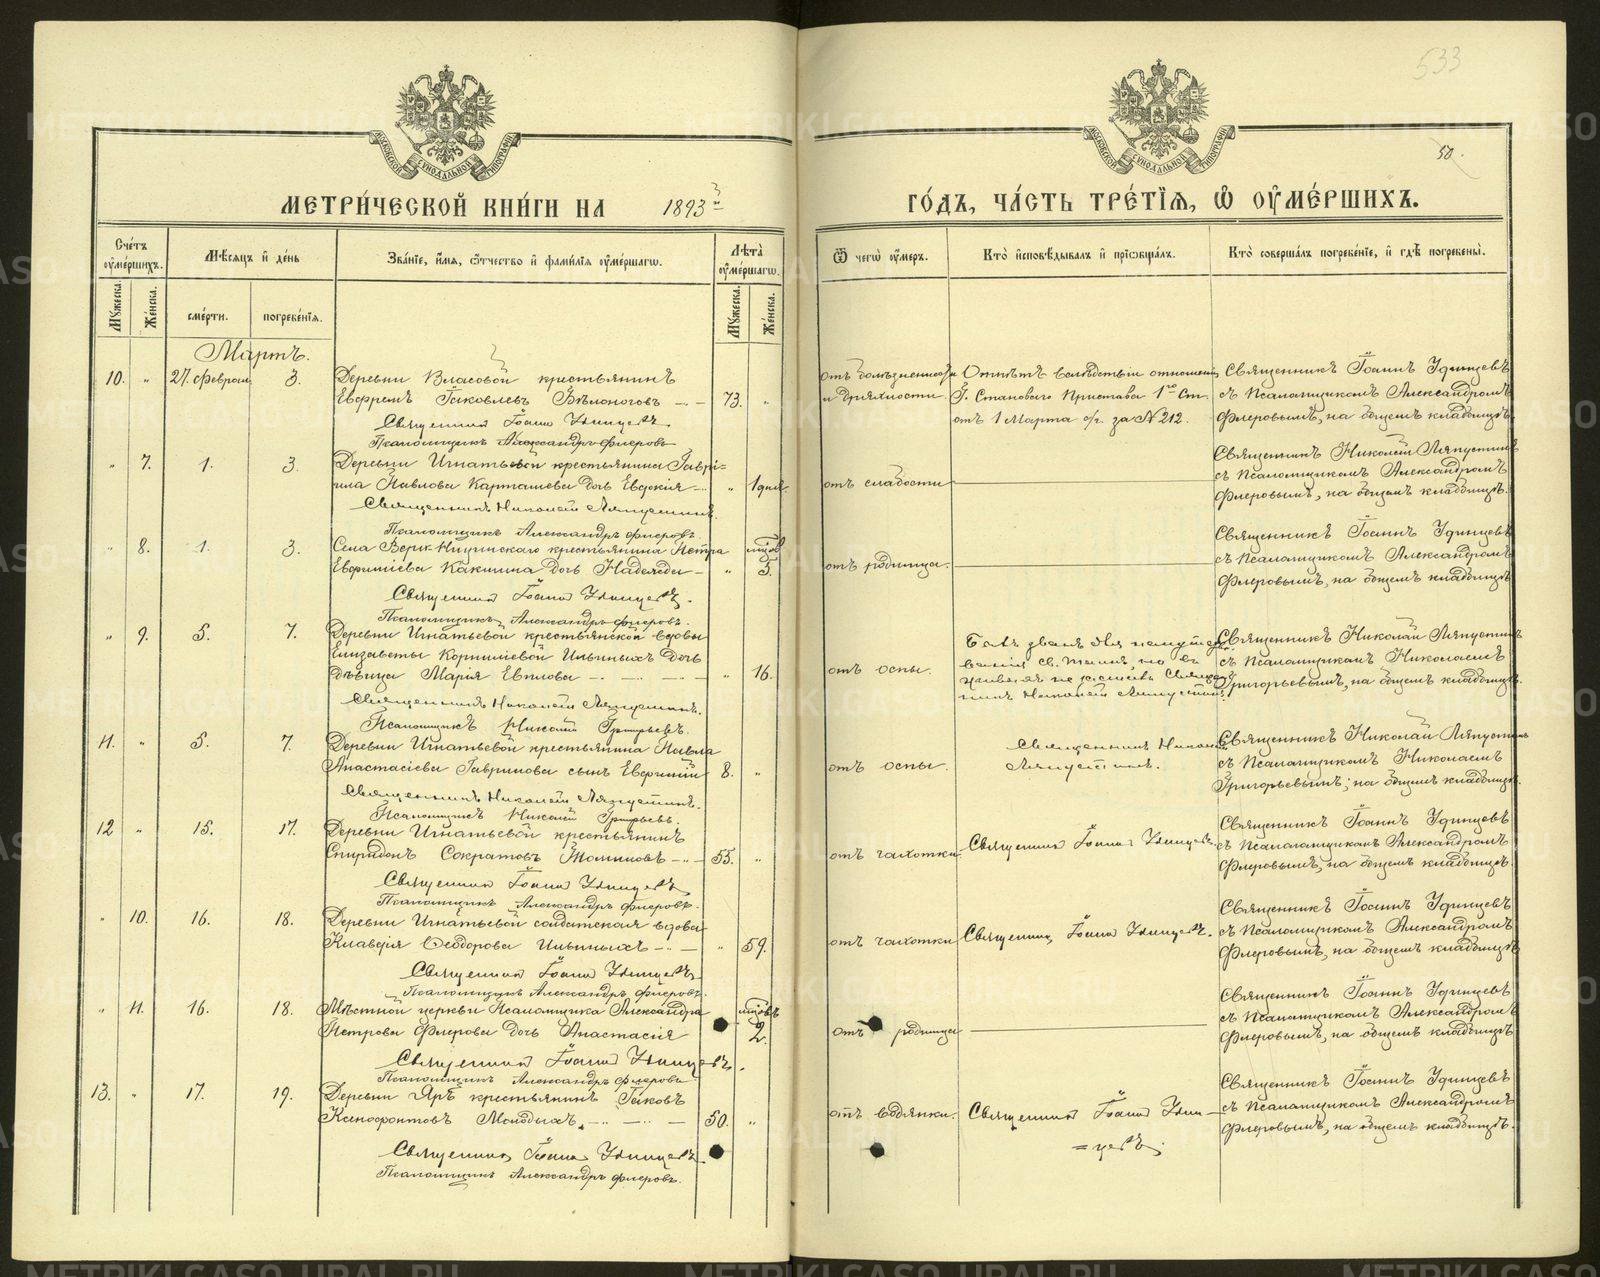 533
50.
МОСКОВСКОЙ СѴНОДАЛЬНОЙ ТИПОГРАФІИ
МОСКОВСКОЙ СѴНОДАЛЬНОЙ ТИПОГРАФІИ
МЕТРИ́ЧЕСКОЙ КНИ́ГИ НА 1893 й
ГО́ДЪ, ЧА́СТЬ ТРЕ́ТІЯ, Ѡ҆ ОУ҆МЕ́РШИХЪ.
Сче́тъ оу҆ме́ршихъ.
Мѣ́сяцъ и҆ де́нь
Зва́ніе, и҆́мя, ѻ҆́тчество и҆ фами́лія оу҆ме́ршагѡ.
Лѣта̀ оу҆ме́ршагѡ.
Ѿ чегѡ̀ оу҆́меръ.
Кто̀ и҆сповѣ́дывалъ и҆ прїѡбща́лъ.
Кто̀ соверша́лъ погребе́ніе, и҆ гдѣ̀ погребены̀.
Му́жеска.
Же́нска.
сме́рти.
погребе́нія.
Му́жеска.
Же́нска.
Мартъ.
10. " 27. Февраля 3. Деревни Власовой крестьянинъ
Ефремъ Іаковлевъ Бѣлоноговъ 73. "
Священникъ Іоаннъ Удинцевъ
Псаломщикъ Александръ Флеровъ
и дряхлости
Отпѣтъ вслѣдствіи отношенія
Г. Становаго Пристава 1го Ст.
отъ 1 Марта с/г. за № 212.
Священникъ Іоаннъ Удинцевъ
съ Псаломщикомъ Александромъ
Флеровымъ, на общемъ кладбищѣ.
" 7. 1. 3. Деревни Игнатьевой крестьянина Гаврі=
ила Павлова Карташева дочь Евдокія " 1 дня.
Священникъ Николай Ляпустинъ.
Псаломщикъ Александръ Флеровъ
отъ слабости
Священникъ Николай Ляпустинъ
съ Псаломщикомъ Александромъ
Флеровымъ, на общемъ кладбищѣ.
" 8. 1. 3. Села Верх-Ницинскаго крестьянина Петра
Евфиміева Какшина дочь Надежда " 5.
Священникъ Іоаннъ Удинцевъ.
Псаломщикъ Александръ Флеровъ.
отъ родимца.
Священникъ Іоаннъ Удинцевъ
съ Псаломщикомъ Александромъ
Флеровымъ, на общемъ кладбищѣ
" 9. 5. 7. Деревни Игнатьевой крестьянской вдовы
Елизаветы Корниліевой Ильиныхъ дочь
дѣвица Марія " 16.
Священникъ Николай Ляпустинъ.
Псаломщикъ Николай Григорьевъ.
отъ оспы.
Священникъ Николай Ляпустинъ
съ Псаломщикомъ Николаемъ
Григорьевымъ, на общемъ кладбищѣ.
11. " 5. 7. Деревни Игнатьевой крестьянина Павла
Анастасіева Гаврилова сынъ Евгеній 8. "
Священникъ Николай Ляпустинъ.
Псаломщикъ Николай Григорьевъ.
отъ оспы.
Священникъ Николай
Ляпустинъ.
Священникъ Николай Ляпустинъ
съ Псаломщикомъ Николаемъ
Григорьевымъ, на общемъ кладбищѣ.
12 " 15. 17. Деревни Игнатьевой крестьянинъ
Спиридонъ Сократовъ 55. "
Священникъ Іоаннъ Удинцевъ
Псаломщикъ Александръ Флеровъ.
отъ чахотки
Священникъ Іоаннъ Удинцевъ.
Священникъ Іоаннъ Удинцевъ
съ Псаломщикомъ Александромъ
Флеровымъ, на общемъ кладбищѣ.
" 10. 16. 18. Деревни Игнатьевой солдатская вдова
Клавдія Ѳеодорова Ильиныхъ " 59.
Священникъ Іоаннъ Удинцевъ
Псаломщикъ Александръ Флеровъ.
отъ чахотки
Священникъ Іоаннъ Удинцевъ.
Священникъ Іоаннъ Удинцевъ
съ Псаломщикомъ Александромъ
Флеровымъ, на общемъ кладбищѣ
" 11. 16. 18. Мѣстной церкви Псаломщика Александра
Петрова Флерова дочь Анастасія 2.
Священникъ Іоаннъ Удинцевъ.
Псаломщикъ Александръ Флеровъ
отъ родимца
Священникъ Іоаннъ Удинцевъ
съ Псаломщикомъ Александромъ
Флеровымъ, на общемъ кладбищѣ
13. " 17. 19. Деревни Яръ крестьянинъ Іаковъ
Ксенофонтовъ Молодыхъ 50. "
Священникъ Іоаннъ Удинцевъ
Псаломщикъ Александръ Флеровъ.
отъ водянки.
Священникъ Іоаннъ Удин—
=цевъ.
Священникъ Іоаннъ Удинцевъ
съ Псаломщикомъ Александромъ
Флеровымъ, на общемъ кладбищѣ.
METRIKI.GASO-URAL.RU